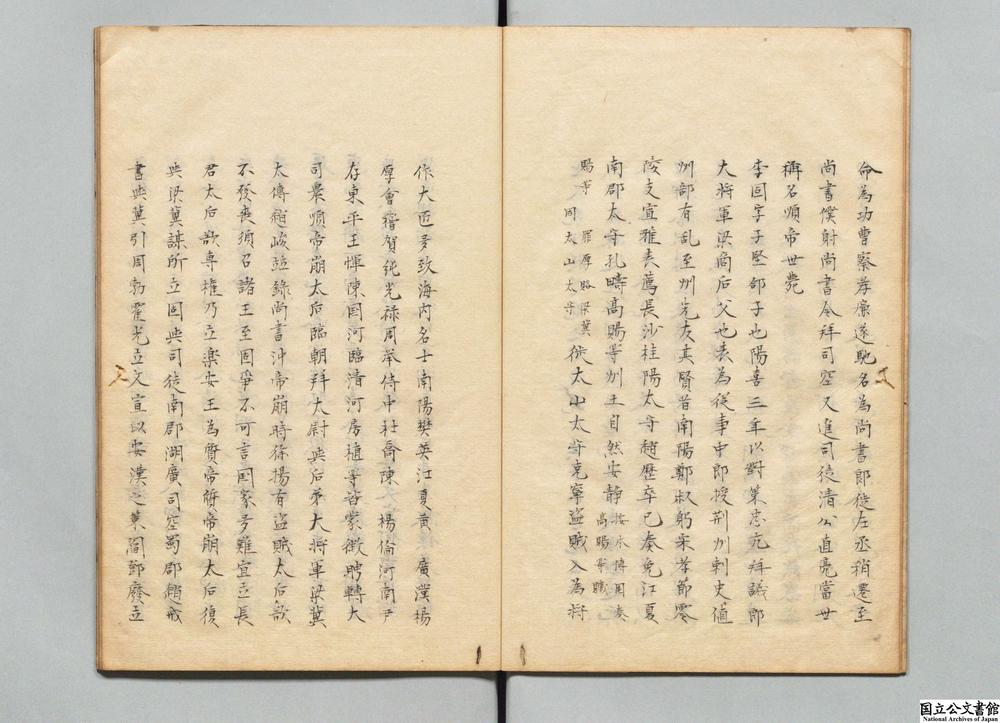 命為功曹察孝廉遂馳名為尚書郎從左丞稍遷至
尚書僕射尚書令拜司空又進司徒清公直亮當世
稱名順帝世薨
李固字子堅郃子也陽嘉三年以對策忠亢拜議郎
大將軍梁商后父也表為従事中郎授荆州刺史值
州部有乱至州先友其賢者南陽鄭叔躬宋孝節零
陵支宣雅表薦長沙桂陽太守趙歴卒已奏免江夏
南郡太守孔疇高賜等州土自然安静
按本傳固奏
高賜等臧
賜等
罪厚賂梁冀
同太山太守
徙太山太守克寧盗賊入為将
作大匠多致海内名士南陽樊英江夏黄 廣漢楊
厚會稽賀純光禄周舉侍中杜喬陳 楊倫河南尹
存東平王惲陳国河臨清河房植等皆蒙徴聘轉大
司農順帝崩太后臨朝拜太尉與后弟大將軍梁冀
太傅趙峻並錄尚書沖帝崩時徐揚有盗賊太后欲
不發喪須召諸王至固爭不可言国家多難宜立長
君太后欲専權乃立楽安王為質帝質帝崩太后復
與梁冀謀所立固與司徒南郡湖廣司空蜀郡趙戒
書與冀引周勃霍光立文宣以安漢之䇿閻鄧廢立
国立公文書館
National Archives of Japan